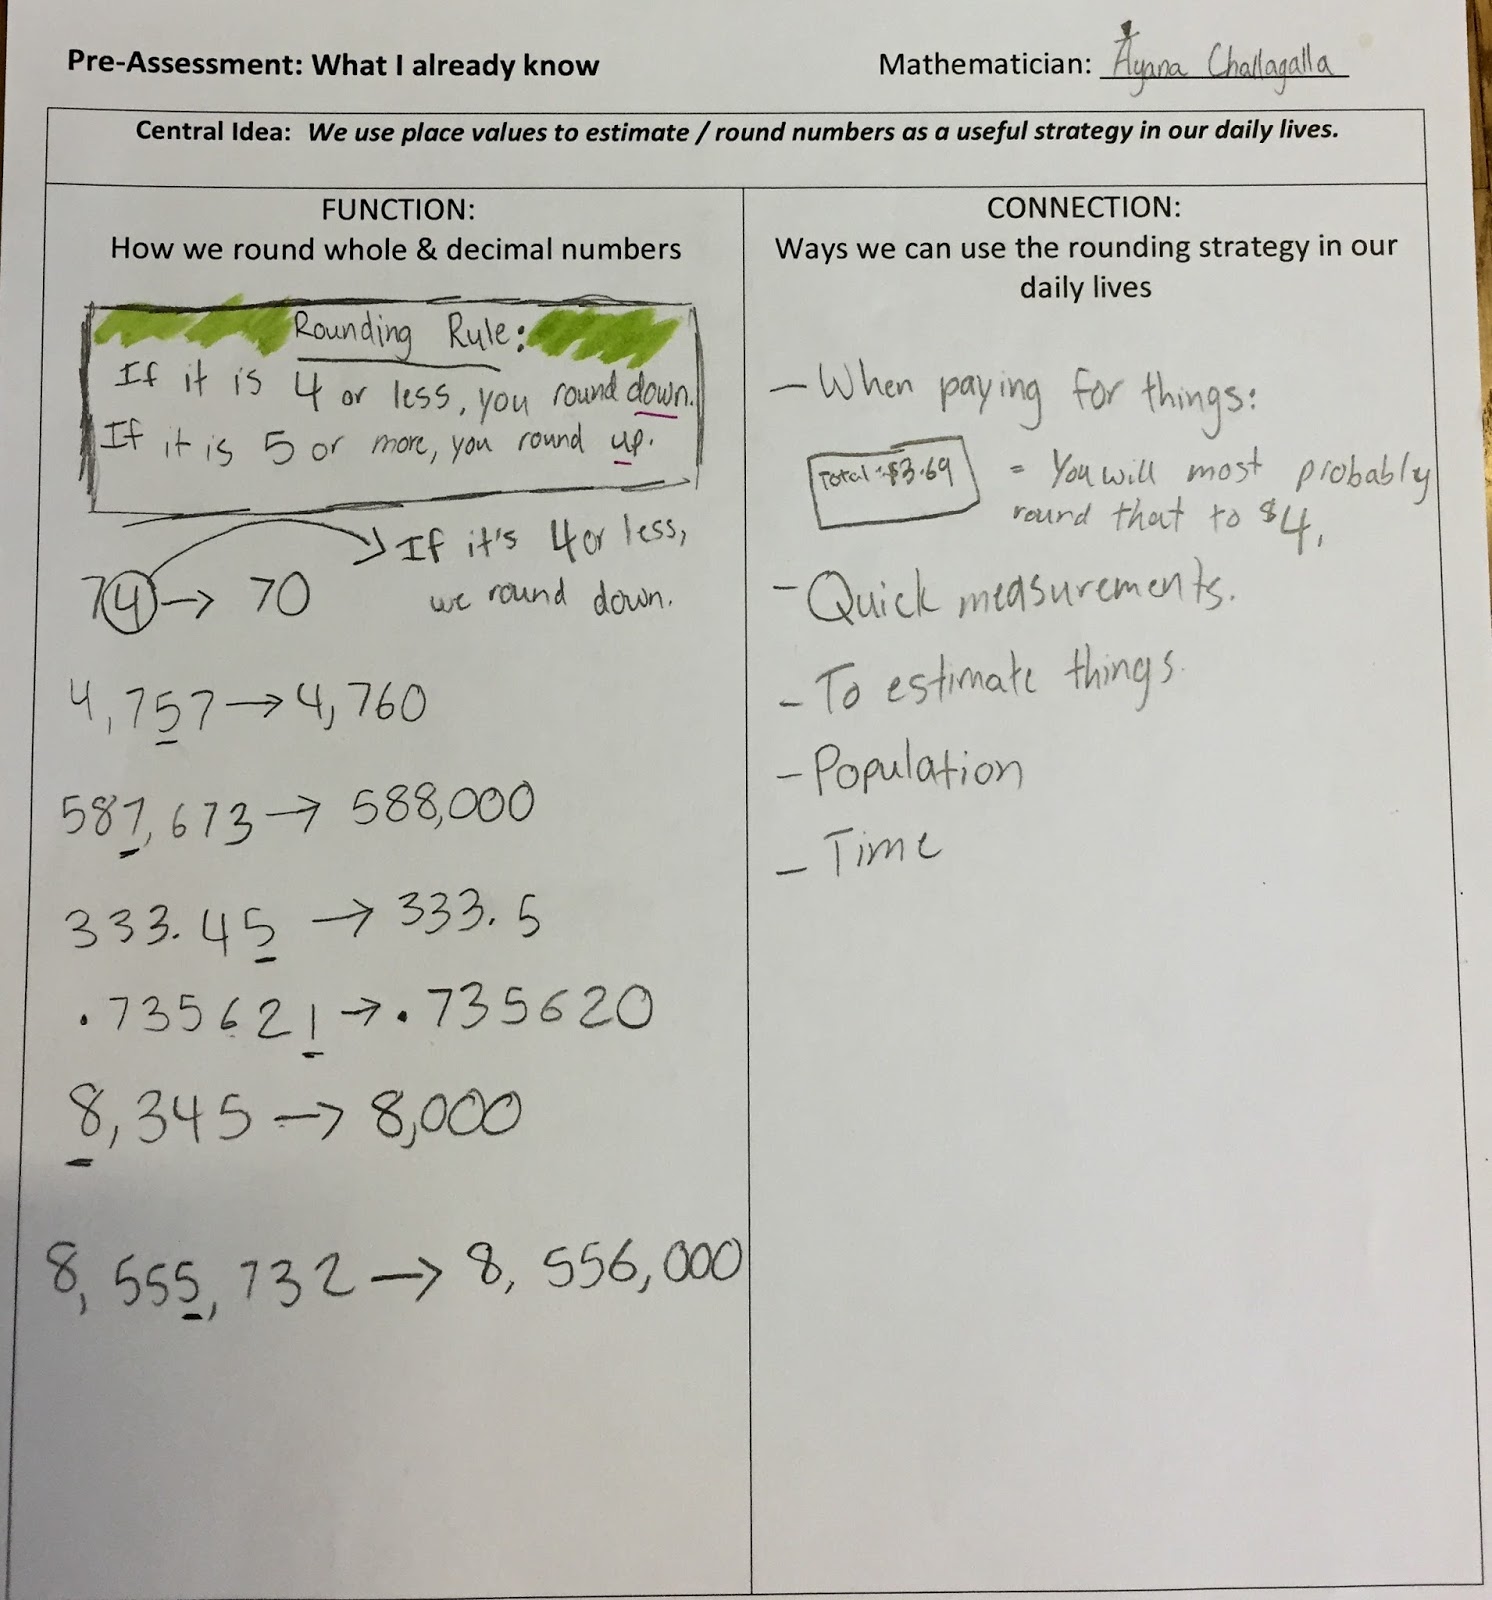 Pre-Assessment: What I already know
Mathematician: Ayana Challagalla
Central Idea: We use place values to estimate / round numbers as a useful strategy in our daily lives.
FUNCTION:
How we round whole & decimal numbers
Rounding Rule:
If it is 4 or less, you round down.
If it is 5 or more, you round up.
If it's 4 or less,
we round down.
74 → 70
4,757 → 4,760
587,673 → 588,000
333.45 → 333.5
.735621 → .735620
8,345 → 8,000
8,555,732 → 8,556,000
CONNECTION:
Ways we can use the rounding strategy in our
daily lives
- When paying for things:
Total: $3.69 = You will most probably
round that to $4.
- Quick measurements.
- To estimate things.
- Population
- Time